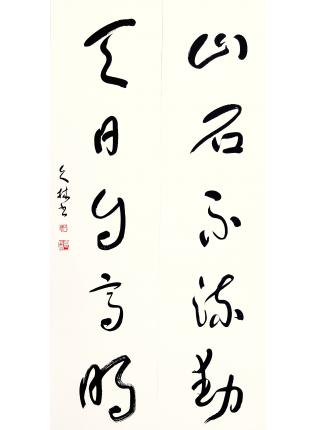 山石不流動
天日自高明